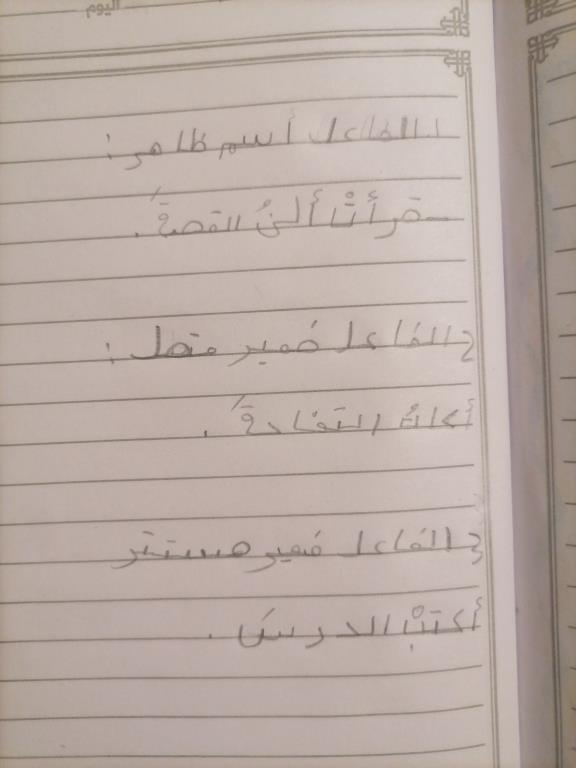 اليوم
١ الفاعل أسم ظاهر :
قرأتْ ألينُ القصةَ .
٢ الفاعل ضمير متصل :
أكلتُ التفاحةَ .
٣ الفاعل ضمير مستتر
أكتبْ الدرسَ .